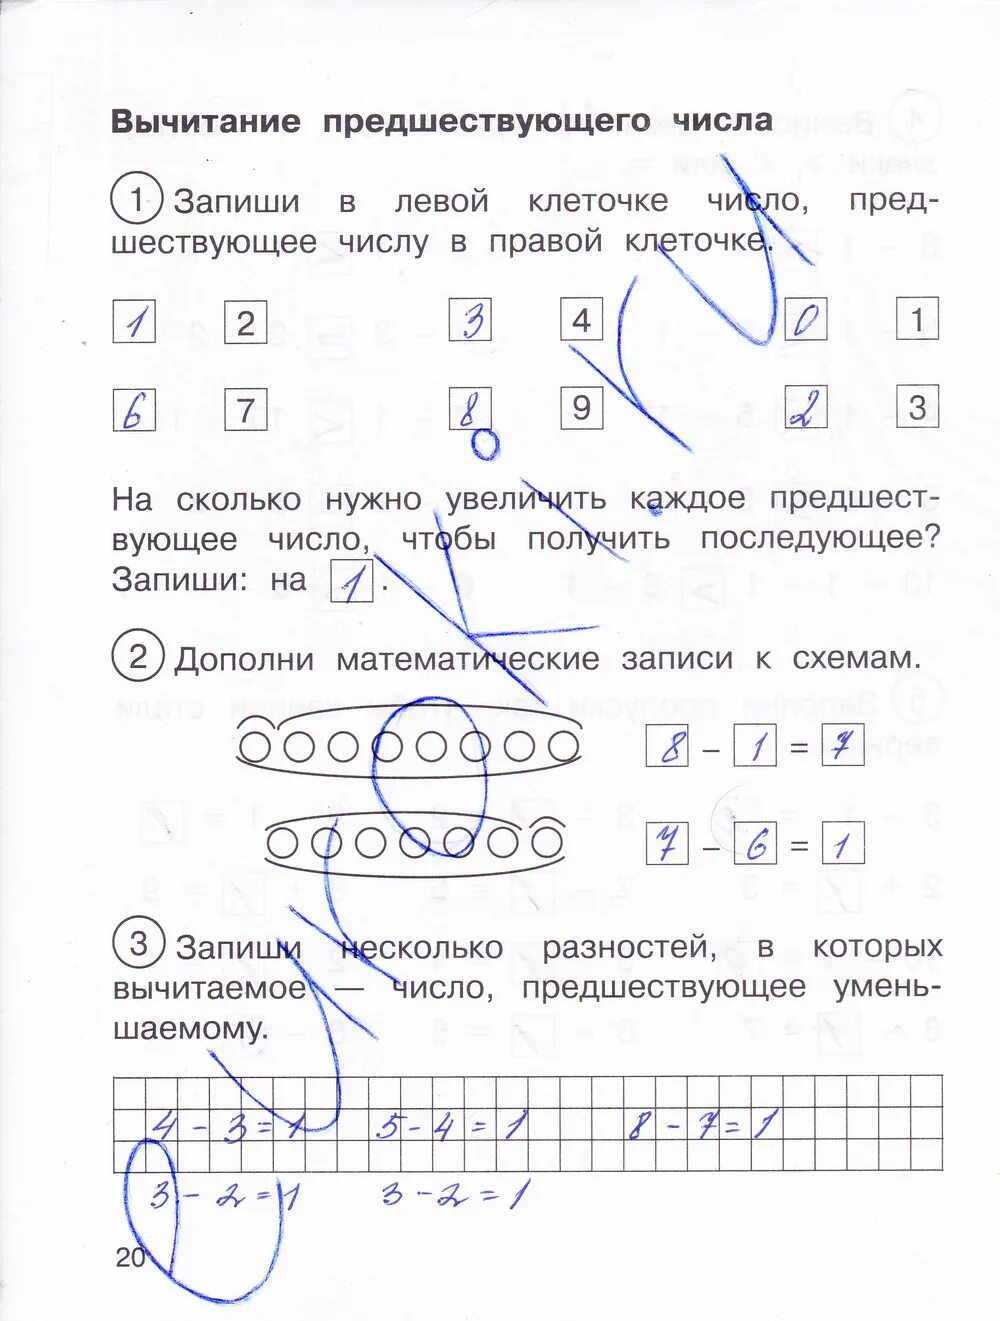 Вычитание предшествующего числа
1 Запиши в левой клеточке число, пред-
шествующее числу в правой клеточке.
1 2 3 4 0 1
6 7 8 9 2 3
На сколько нужно увеличить каждое предшест-
вующее число, чтобы получить последующее?
Запиши: на 1.
2 Дополни математические записи к схемам.
8 - 1 = 7
7 - 6 = 1
3 Запиши несколько разностей, в которых
вычитаемое — число, предшествующее умень-
шаемому.
4 - 3 = 1 5 - 4 = 1 8 - 7 = 1
3 - 2 = 1 3 - 2 = 1
20